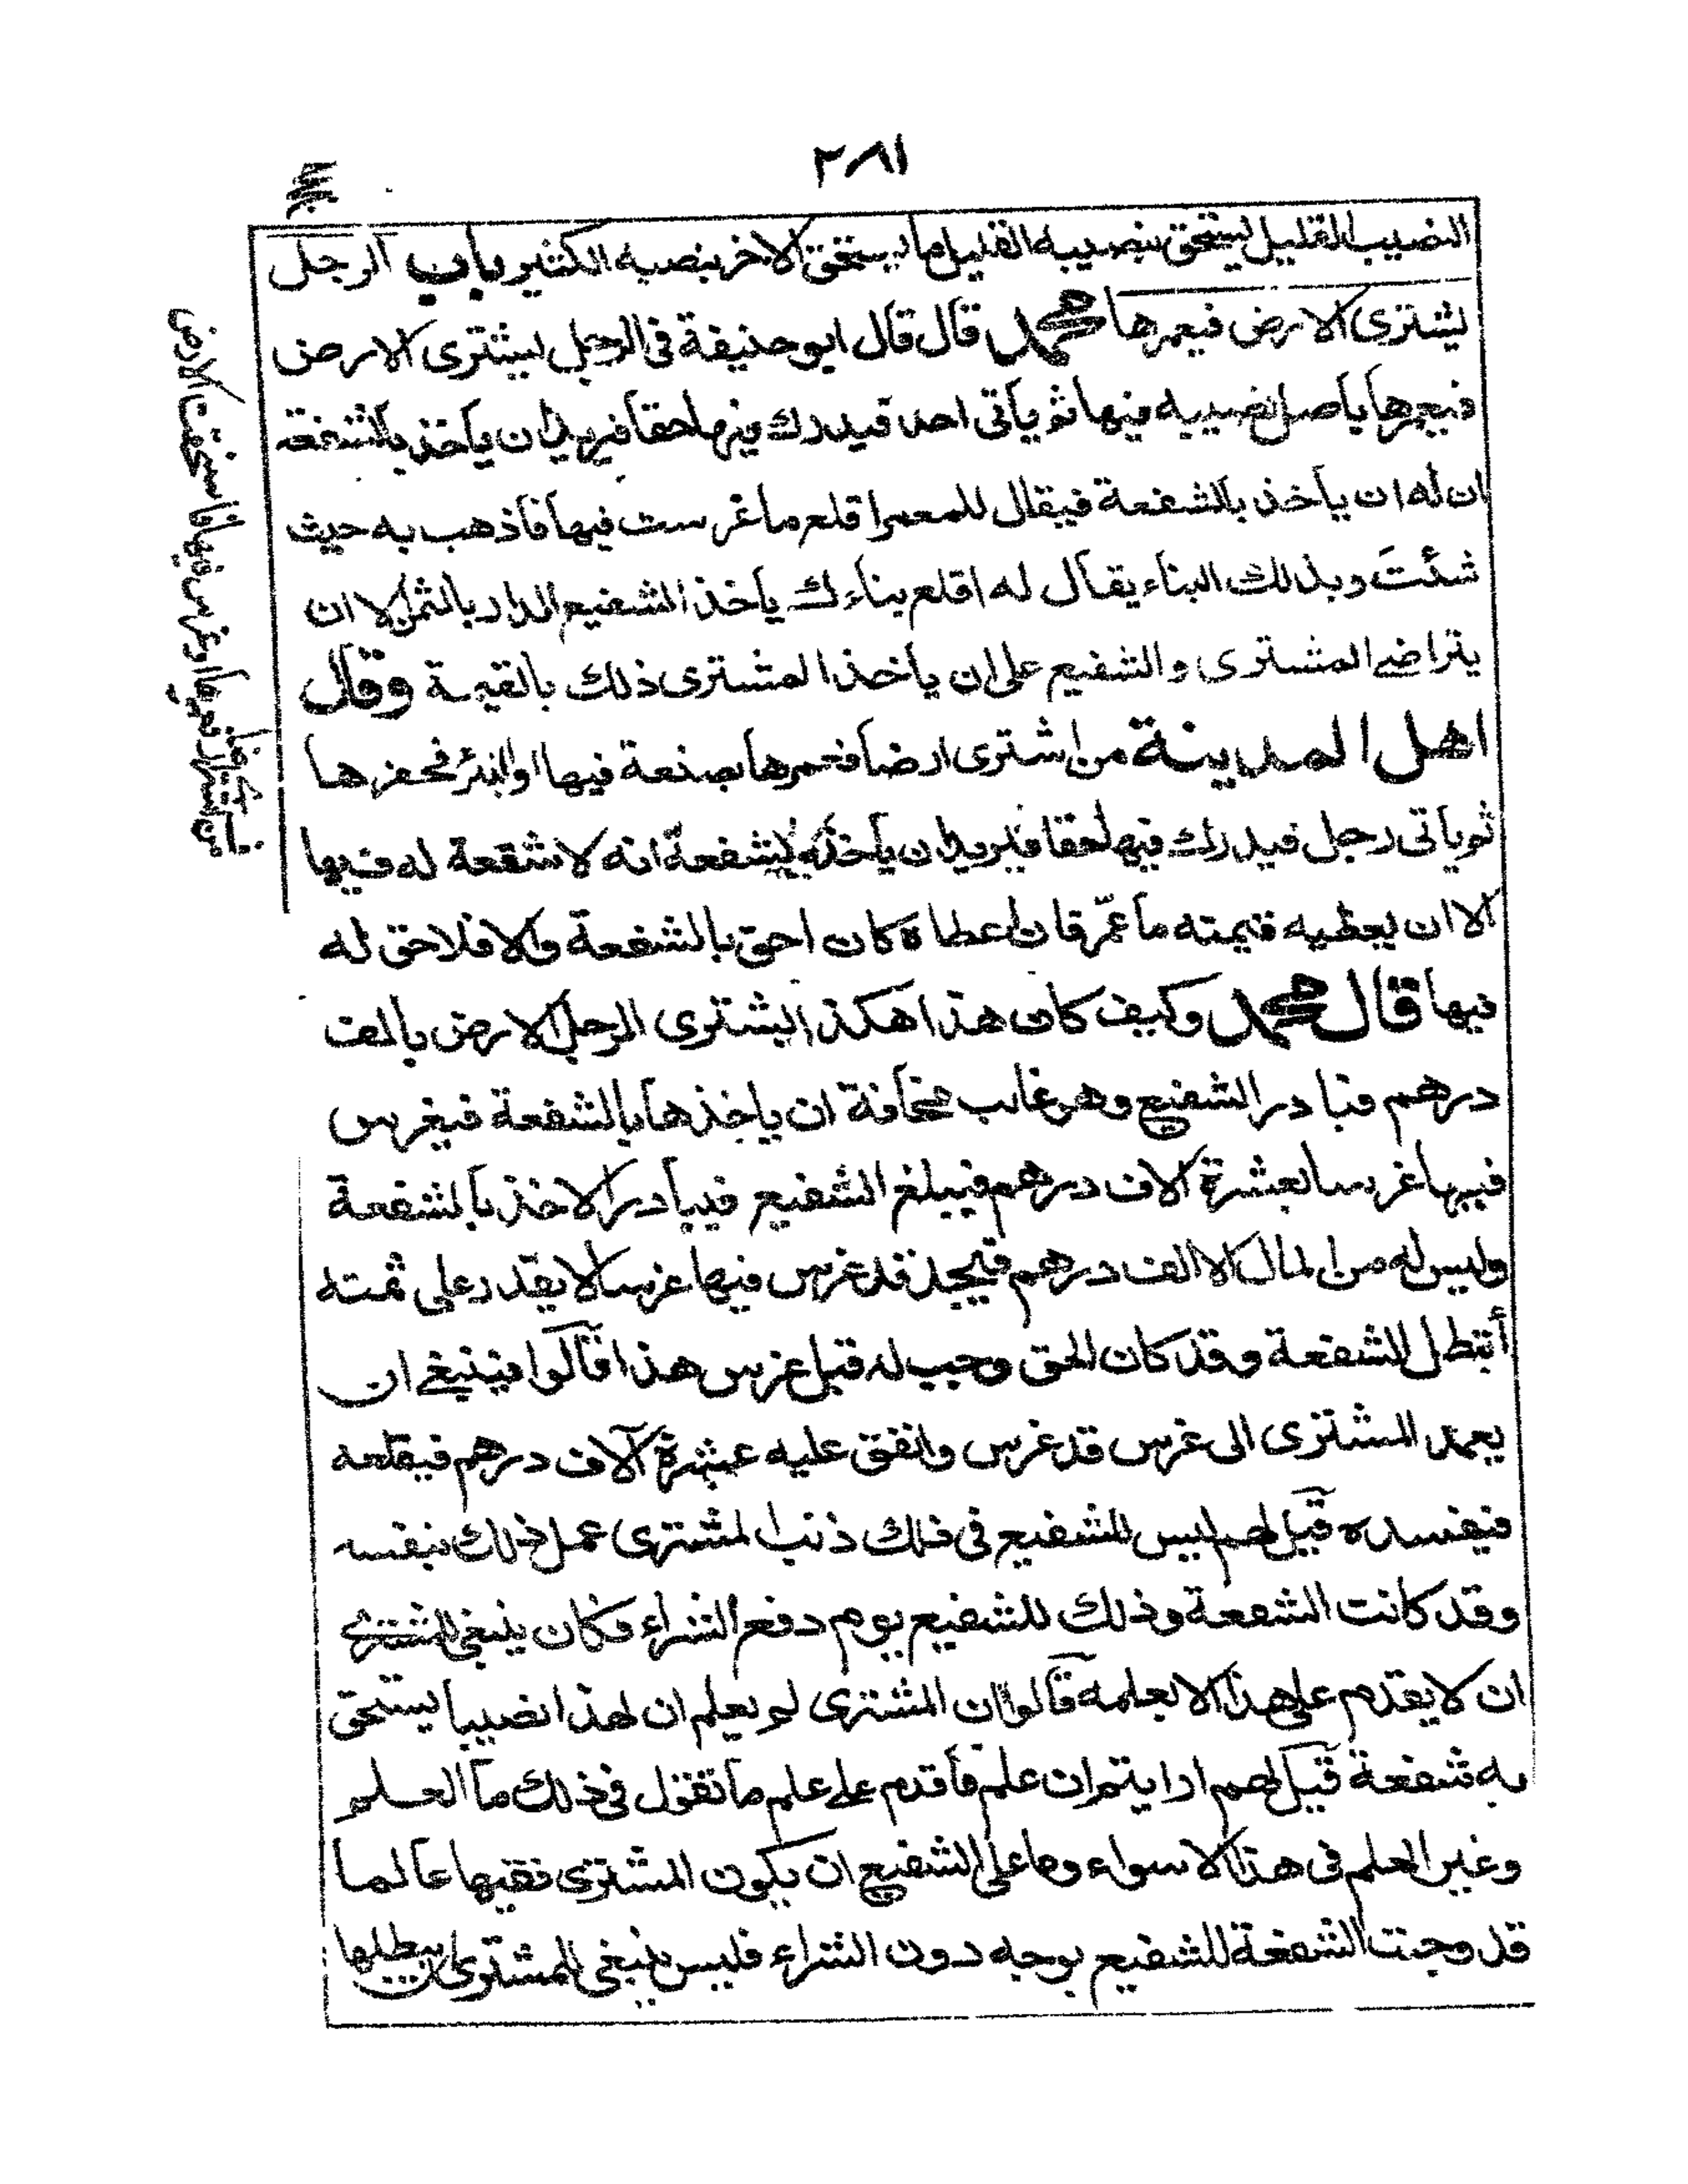 ٢٨١
النصيب القليل يستحق بنصيبه القليل ما يستحق الاخر بنصيبه الكثير باب الرجل
يشترى الارض فيعمرها محمد قال قال ابو حنيفة فى الرجل يشترى الارض
فيعمرها باصل نصيبه فيها ثم ياتى احد فيدرك فيها حقا فيريد ان ياخذ بالشفعة
ان له ان ياخذ بالشفعة فيقال للمعمر اقلع ما غرست فيها فاذهب به حيث
شئتَ وبذلك البناء يقال له اقلع بناءك ياخذ الشفيع الدار بالثمن الا ان
يتراضى المشترى والشفيع على ان ياخذ المشترى ذلك بالقيمة وقال
اهل المدينة من اشترى ارضا فحمرها بصنعة فيها او البئر فحفرها
ثم ياتى رجل فيدرك فيها حقا فيريد ان ياخذه بالشفعة انه لا شقعة له فيها
الا ان يعطيه قيمته ما عمّر فان اعطاه كان احق بالشفعة والا فلا حق له
فيها قال محمد وكيف كان هذا هكذا يشترى الرجل الارض بالف
درهم فبادر الشفيع وهو غايب مخافة ان ياخذها بالشفعة فيغرس
فيها غرسا بعشرة الاف درهم فيبلغ الشفيع فيبادر الاخذ بالشفعة
وليس له من المال الا الف درهم فيجد قد غرس فيها غرسا لا يقدر على ثمنه
أتبطل الشفعة وقد كان الحق وجب له قبل غرس هذا قالوا فينبغى ان
يعمد المشترى الى غرس قد غرس وانفق عليه عشرة آلاف درهم فيقلعه
فيفسده قيل لهم ليس للشفيع فى ذلك ذنب المشترى عمل ذلك بنفسه
وقد كانت الشفعة وذلك للشفيع يوم دفع الشراء فكان ينبغى للمشترى
ان لا يقدم على هذا الا بعلمه قالوا ان المشترى لم يعلم ان لهذا نصيبا يستحق
به شفعة قيل لهم ارايتم ان علم فاقدم على علم ما تقول فى ذلك ما العلم
وغير العلم فى هذا الا سواء وما على الشفيع ان يكون المشترى فقيها عالما
قد وجبت الشفعة للشفيع بوجه دون الشراء فليس ينبغى للمشترى ان يبطلها